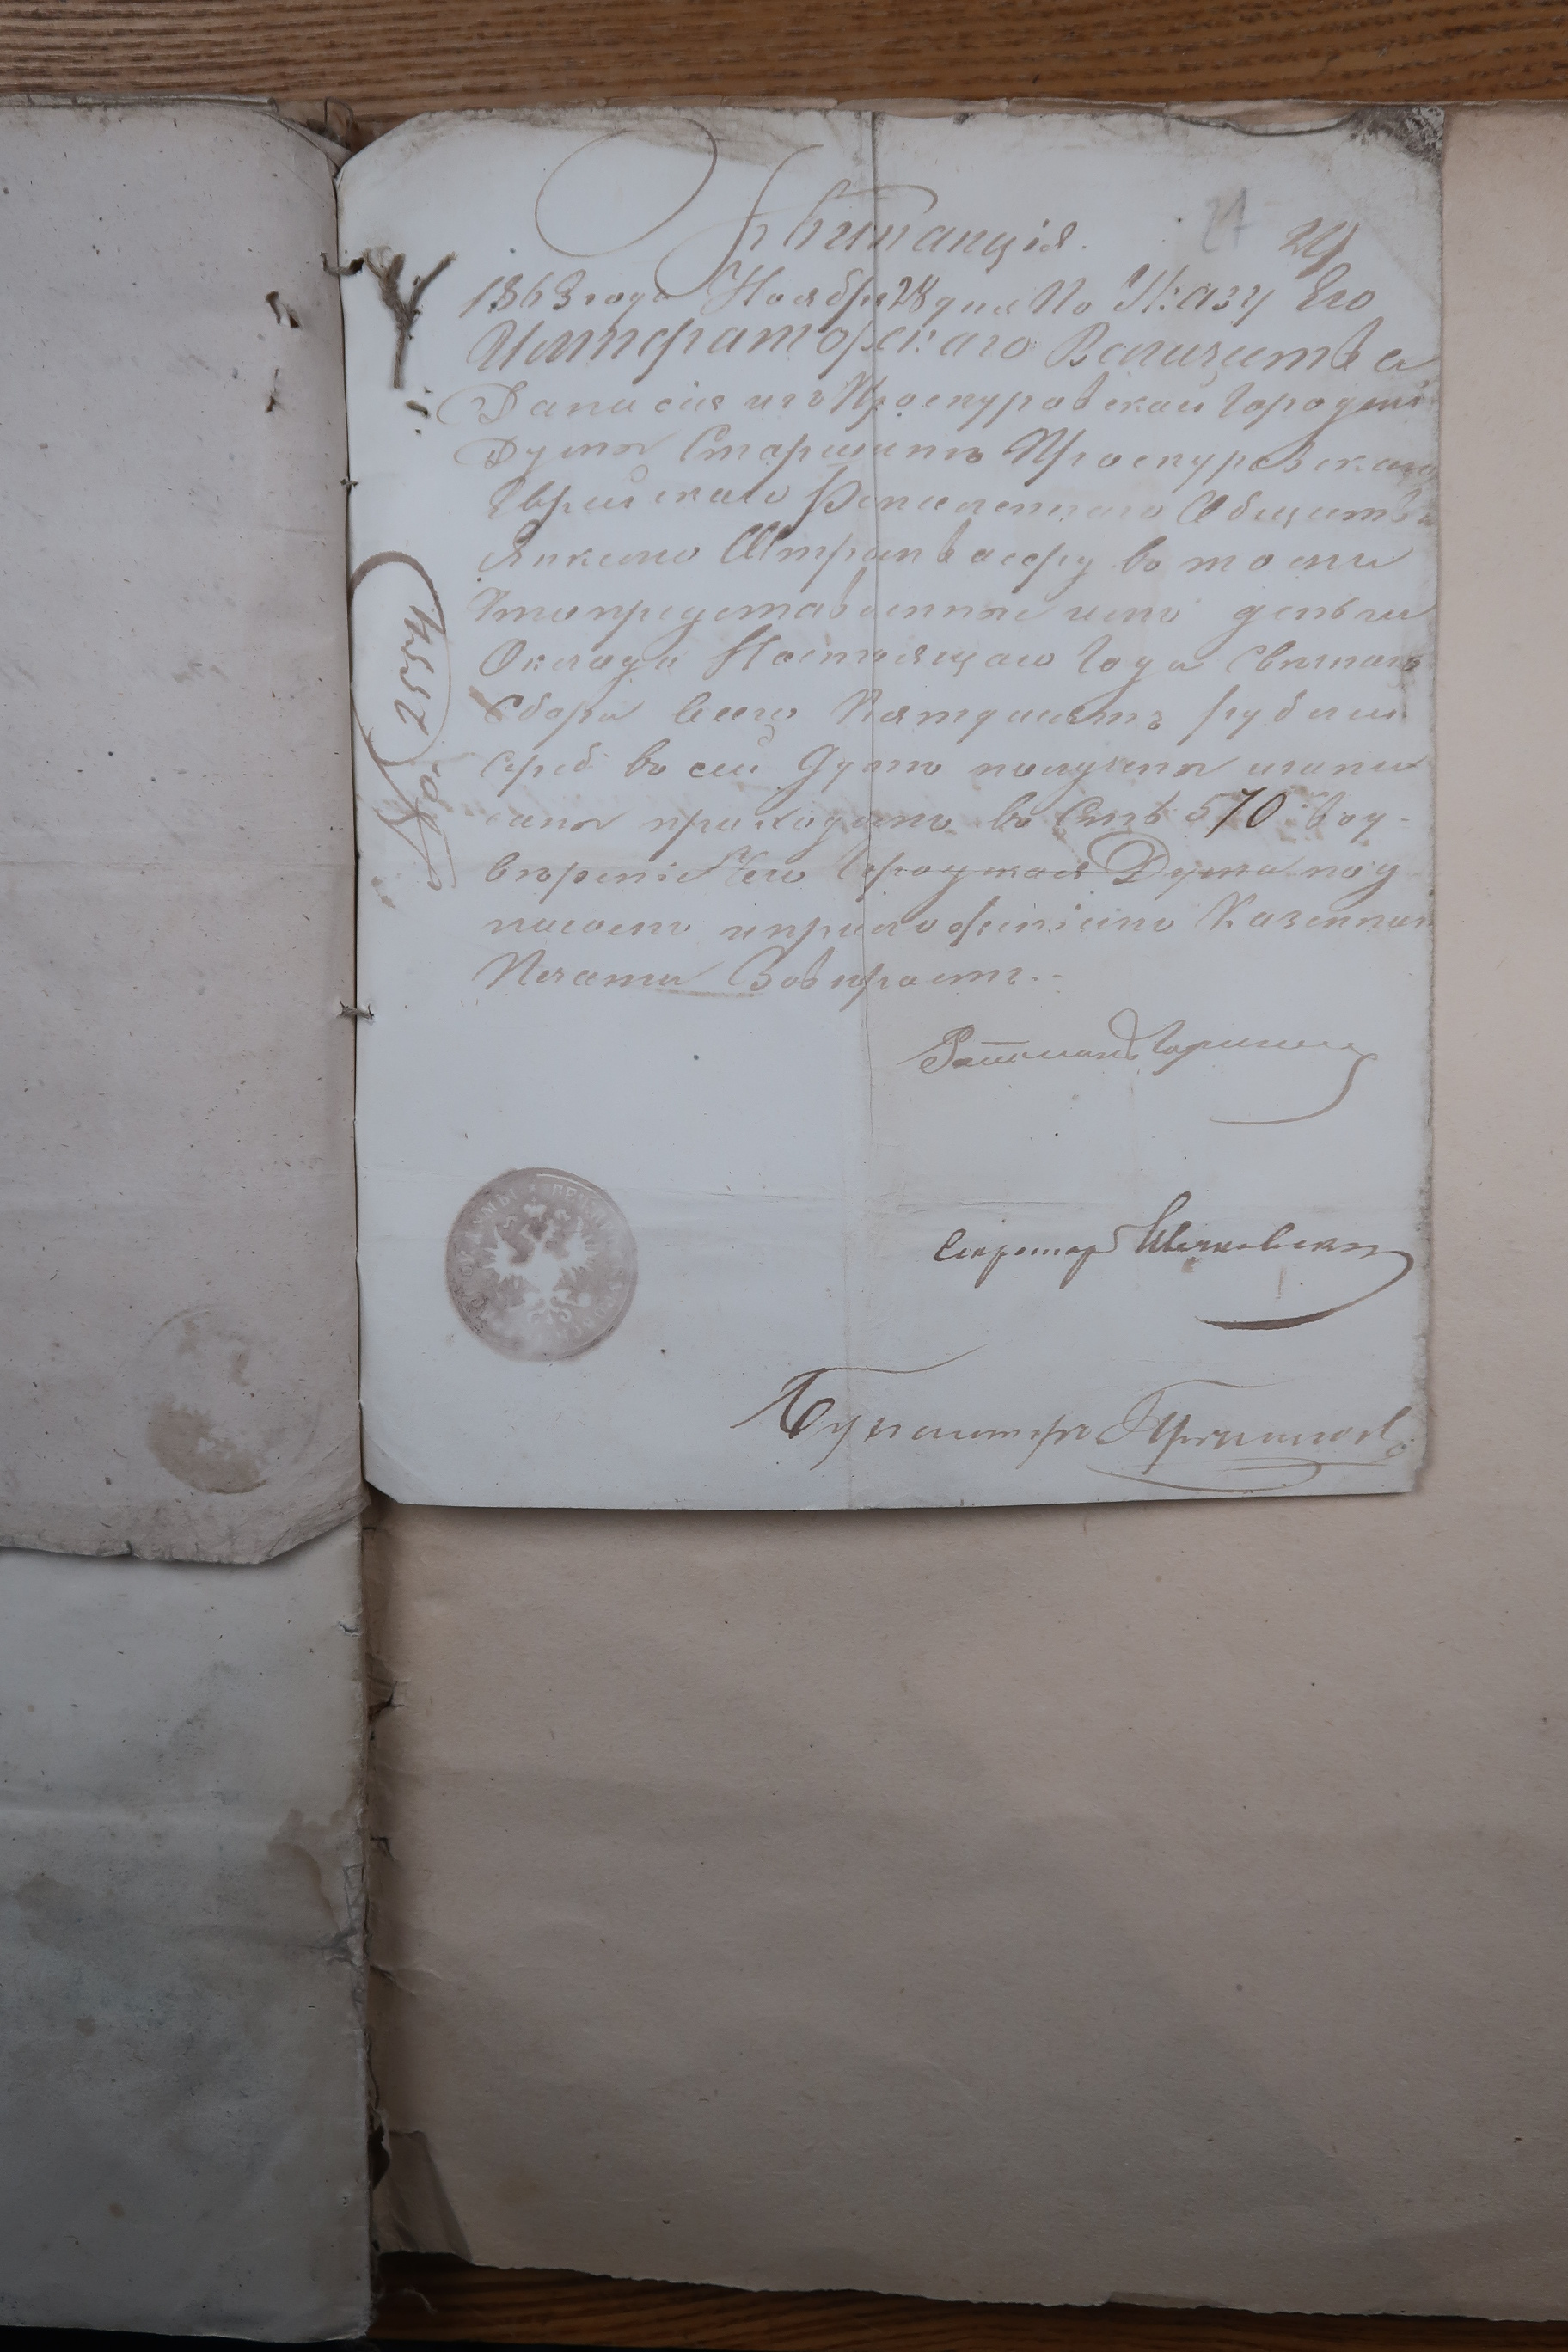 Квитанція.
27 29
1863 года Ноября 28 дня По Указу Его
Императорскаго Величества
Дана сія изъ Проскуровской Городской
Думы Старшинѣ Проскуровскаго
Еврейскаго Общества
Янкелю во томъ
что представленные имъ деньги
Оклада Настоящаго Года Свечнаго
Сбора всего Пятдесятъ рублей
сереб во сей Думѣ получены изапи
саны приходомъ во Ст. 570 воу-
вѣреніе чего Городская Дума под
писомъ иприложеніемъ Казенной
Печати
№ 2554
Ратманъ
Секретарь
Бухгалтеръ